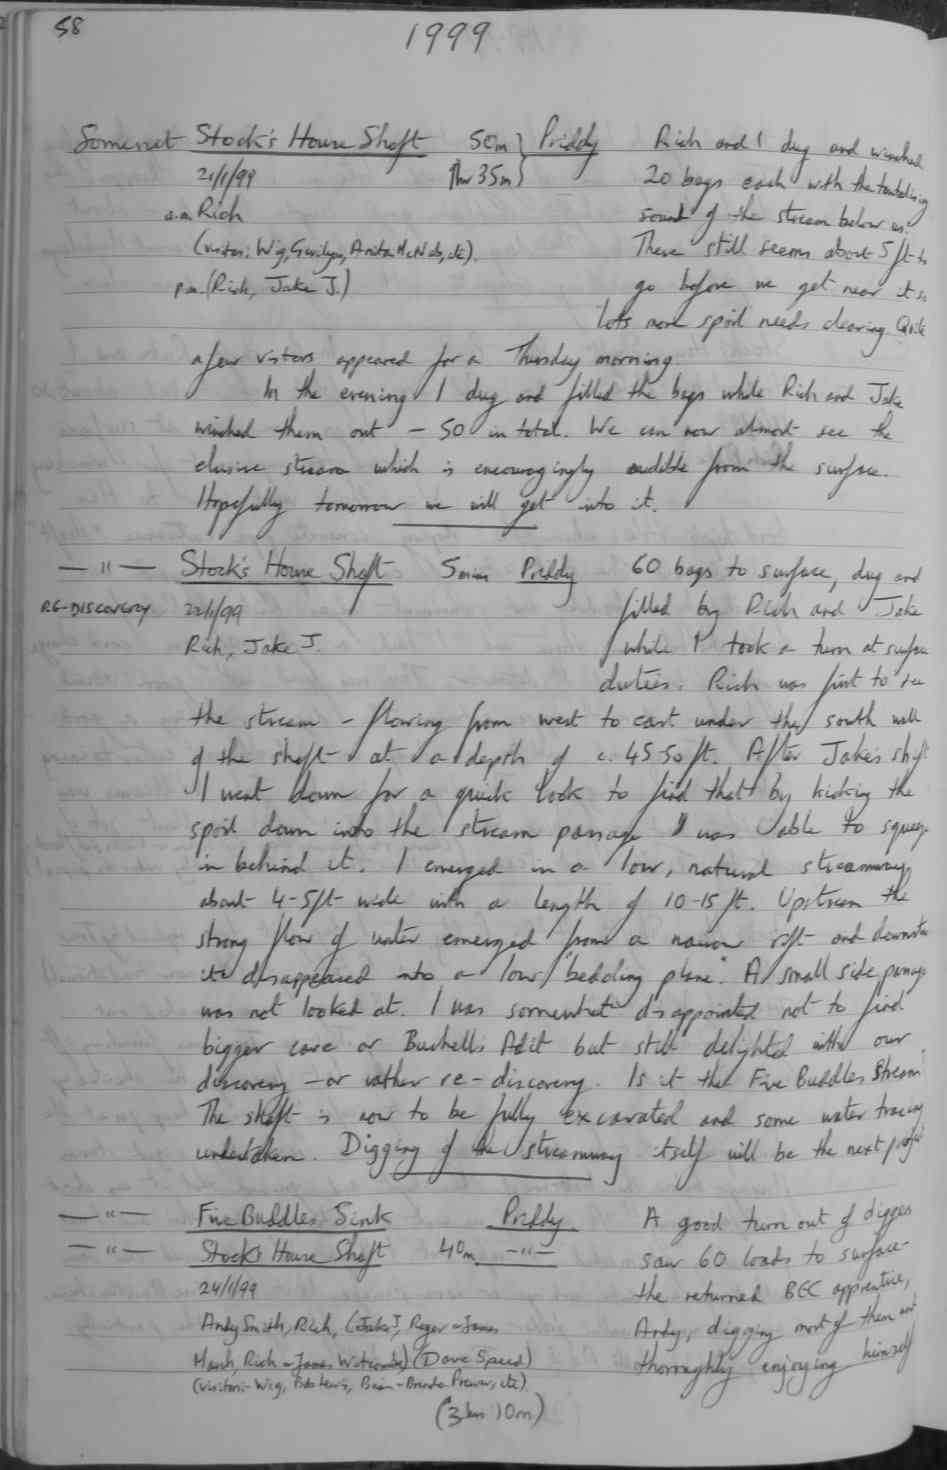 58
1999
Somerset Stock's House Shaft 50m } Priddy Rich and I dug and winched
21/1/99 1hr 35m } 20 bags each with the tantalising
a.m. Rich sound of the stream below us.
(visitors: Wig, Gwilym, Anita McNab, etc). There still seems about 5ft to
p.m. (Rich, Jake J.) go before we get near it so
lots more spoil needs clearing. Quite
a few visitors appeared for a Thursday morning
In the evening I dug and filled the bags while Rich and Jake
winched them out - 50 in total. We can now almost see the
elusive stream which is encouragingly audible from the surface.
Hopefully tomorrow we will get into it.
— " — Stock's House Shaft 5min Priddy 60 bags to surface, dug and
RE-DISCOVERY 22/1/99 filled by Rich and Jake
Rich, Jake J. while I took a turn at surface
duties. Rich was first to see
the stream - flowing from west to east under the south wall
of the shaft at a depth of c. 45-50ft. After Jake's shift
I went down for a quick look to find that by kicking the
spoil down into the stream passage I was able to squeeze
in behind it. I emerged in a low, natural streamway
about 4-5ft wide with a length of 10-15ft. Upstream the
strong flow of water emerged from a narrow rift and downstream
it disappeared into a low "bedding plane". A small side passage
was not looked at. I was somewhat disappointed not to find
bigger cave or Bushell's Adit but still delighted with our
discovery - or rather re-discovery. Is it the Five Buddles Stream?
The shaft is now to be fully excavated and some water tracing
undertaken. Digging of the streamway itself will be the next project
— " — Five Buddles Sink Priddy A good turn out of diggers
— " — Stock's House Shaft 40m — " — saw 60 loads to surface -
24/1/99 the returned BEC apprentice,
Andy Smith, Rich, (Jake J, Roger - James Andy, digging most of them and
Marsh, Rich - James Witcombe) (Dave Speed) thoroughly enjoying himself
(visitors - Wig, Pete Lewis, Brian - Brenda Prewer, etc)
(3hrs 10m)